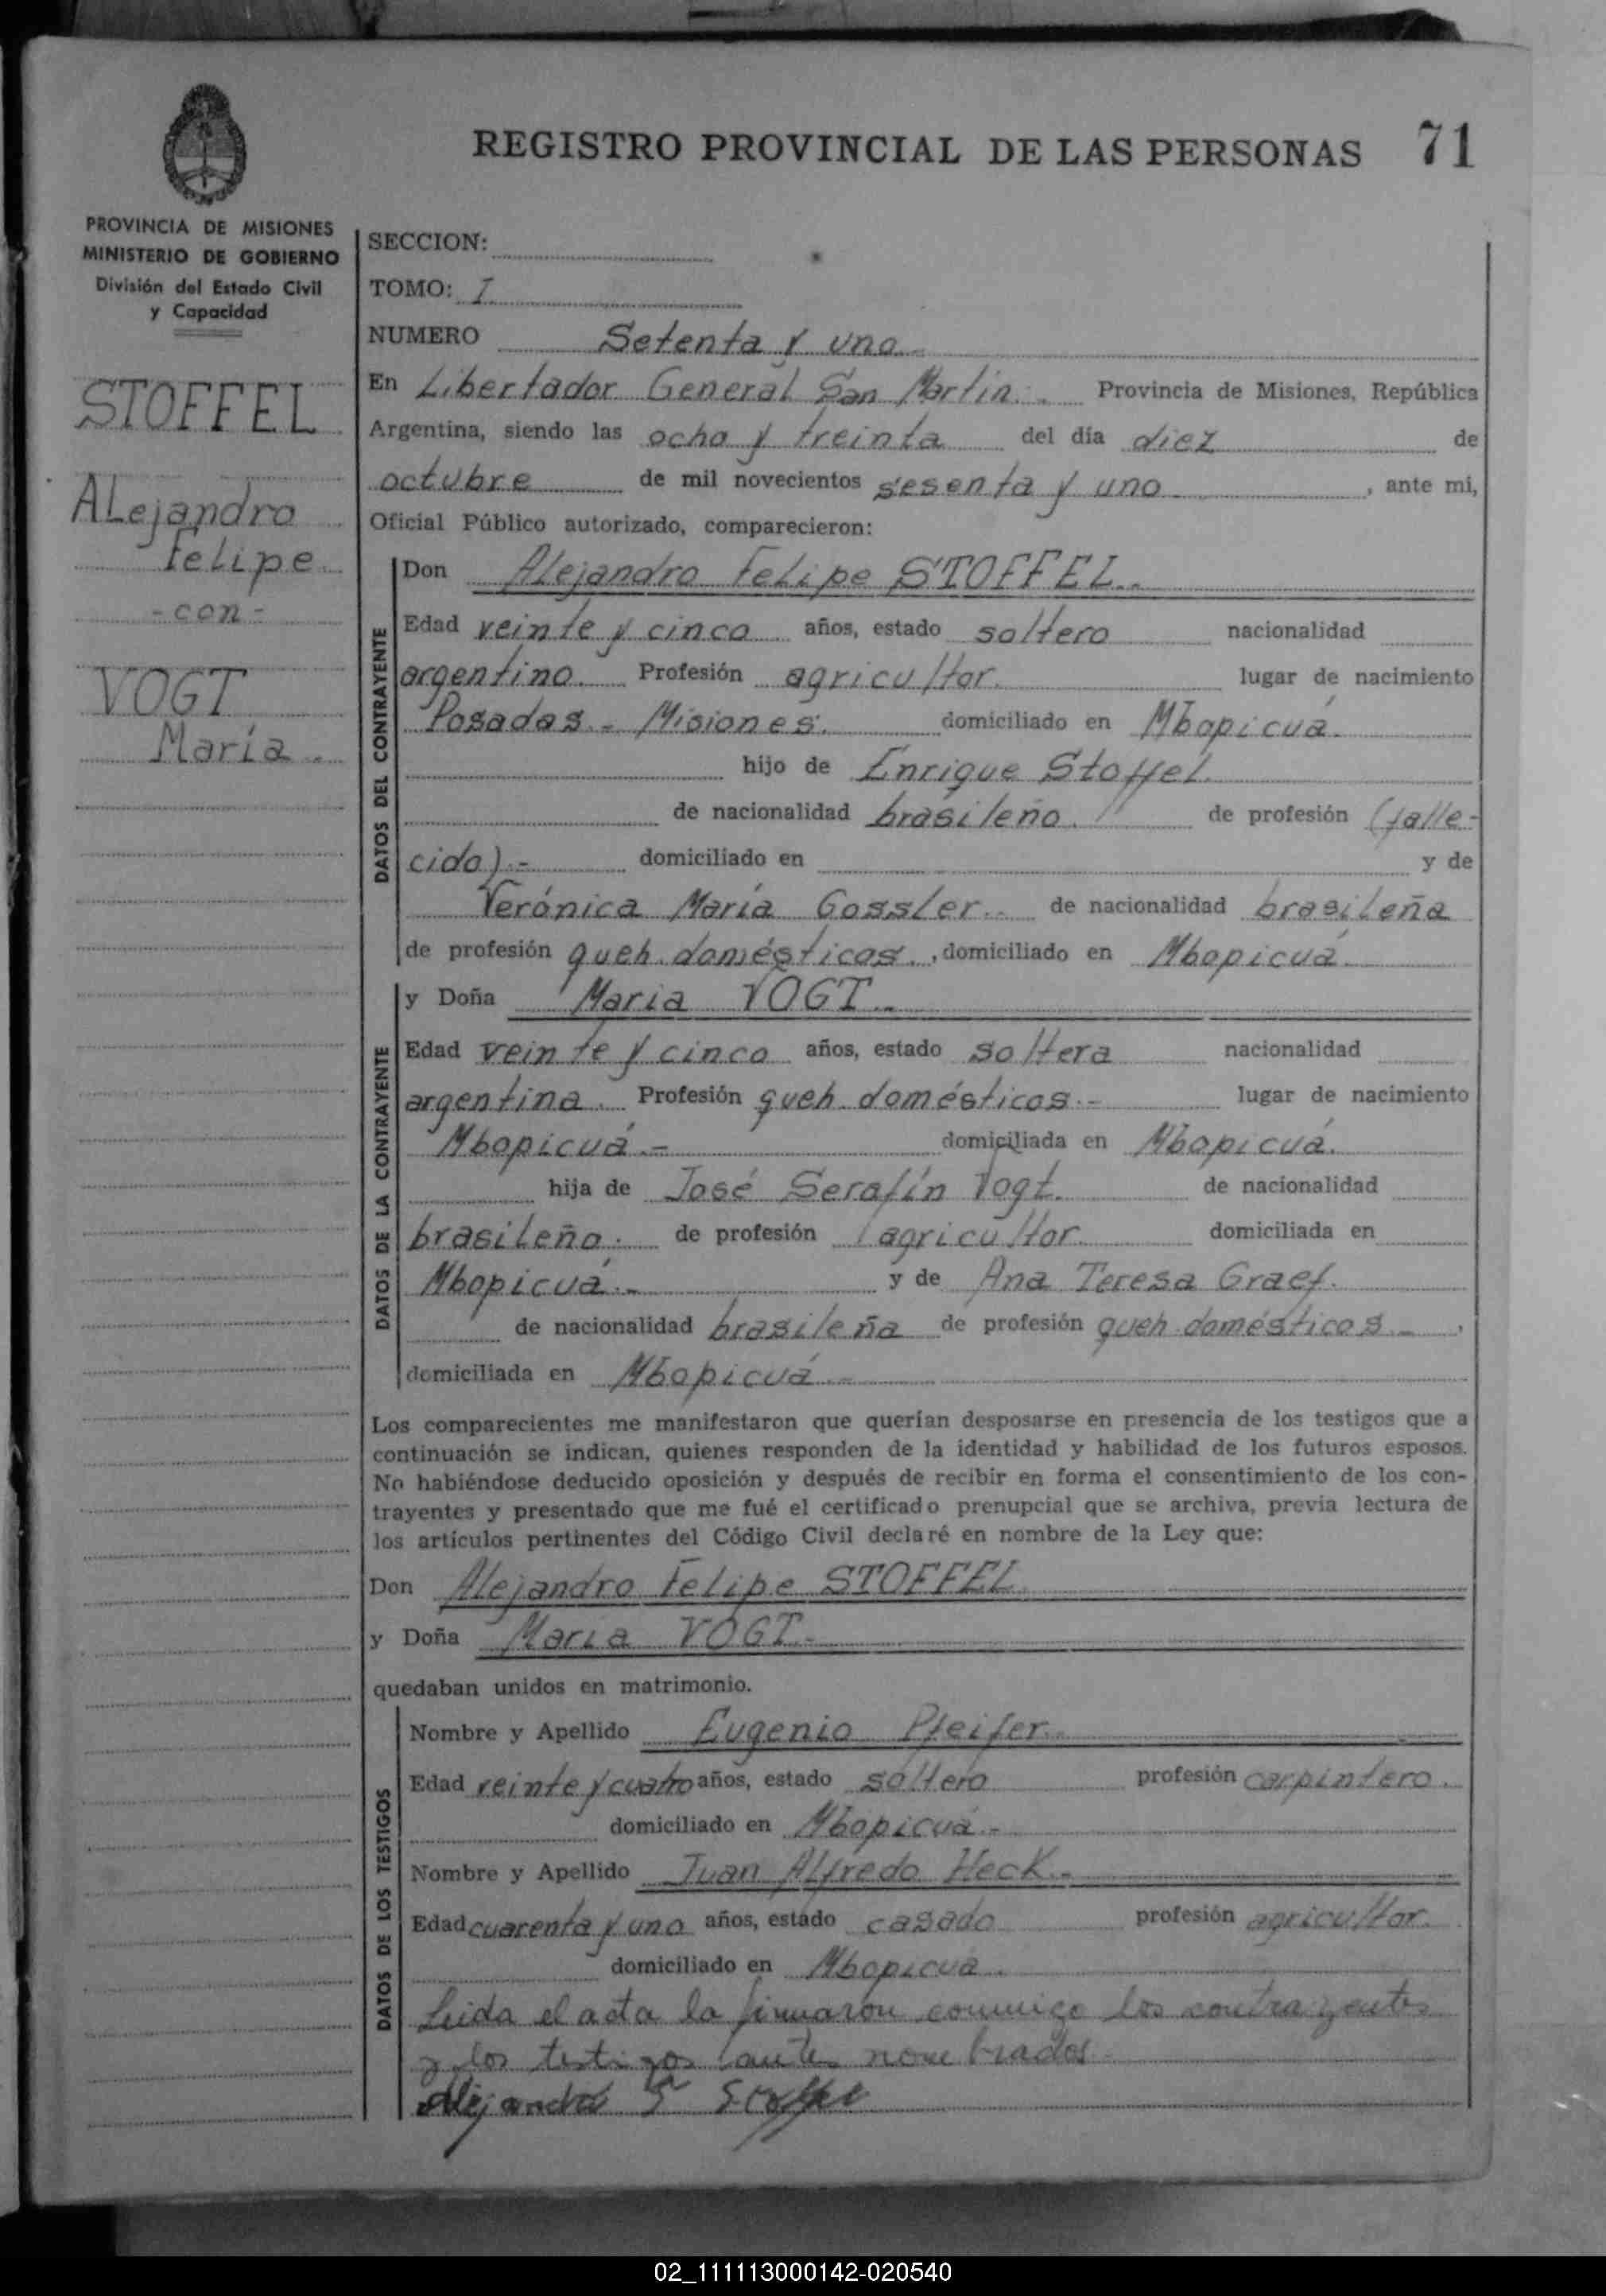 REGISTRO PROVINCIAL DE LAS PERSONAS 71
PROVINCIA DE MISIONES
MINISTERIO DE GOBIERNO
División del Estado Civil
y Capacidad
STOFFEL
ALejandro
Felipe
-con-
VOGT
María..
SECCION:
TOMO: I
NUMERO Setenta y uno
En Libertador General San Martín. Provincia de Misiones, República
Argentina, siendo las ocho y treinta del día diez de
octubre de mil novecientos sesenta y uno , ante mi,
Oficial Público autorizado, comparecieron:
DATOS DEL CONTRAYENTE
Don Alejandro Felipe STOFFEL..
Edad veinte y cinco años, estado soltero nacionalidad
argentino. Profesión agricultor. lugar de nacimiento
Posadas - Misiones. domiciliado en Mbopicuá.
hijo de Enrique Stoffel.
de nacionalidad brasileño. de profesión (falle-
cido).- domiciliado en y de
Verónica María Gossler.. de nacionalidad brasileña
de profesión queh. domésticos. , domiciliado en Mbopicuá.
DATOS DE LA CONTRAYENTE
y Doña María VOGT..
Edad veinte y cinco años, estado soltera nacionalidad
argentina. Profesión queh. domésticos.- lugar de nacimiento
Mbopicuá.- domiciliada en Mbopicuá.
hija de José Serafín Vogt. de nacionalidad
brasileño. de profesión agricultor. domiciliada en
Mbopicuá.- y de Ana Teresa Graef.
de nacionalidad brasileña de profesión queh. domésticos - ,
domiciliada en Mbopicuá.-
Los comparecientes me manifestaron que querían desposarse en presencia de los testigos que a
continuación se indican, quienes responden de la identidad y habilidad de los futuros esposos.
No habiéndose deducido oposición y después de recibir en forma el consentimiento de los con-
trayentes y presentado que me fué el certificado prenupcial que se archiva, previa lectura de
los artículos pertinentes del Código Civil declaré en nombre de la Ley que:
Don Alejandro Felipe STOFFEL
y Doña María VOGT.-
quedaban unidos en matrimonio.
DATOS DE LOS TESTIGOS
Nombre y Apellido Eugenio Pfeifer..
Edad veinte y cuatro años, estado soltero profesión carpintero.
domiciliado en Mbopicuá.-
Nombre y Apellido Juan Alfredo Heck.-
Edad cuarenta y uno años, estado casado profesión agricultor.
domiciliado en Mbopicuá.
Leida el acta la firmaron conmigo los contrayentes
y los testigos antes nombrados.
Alejandro F Stoffel
02_111113000142-020540